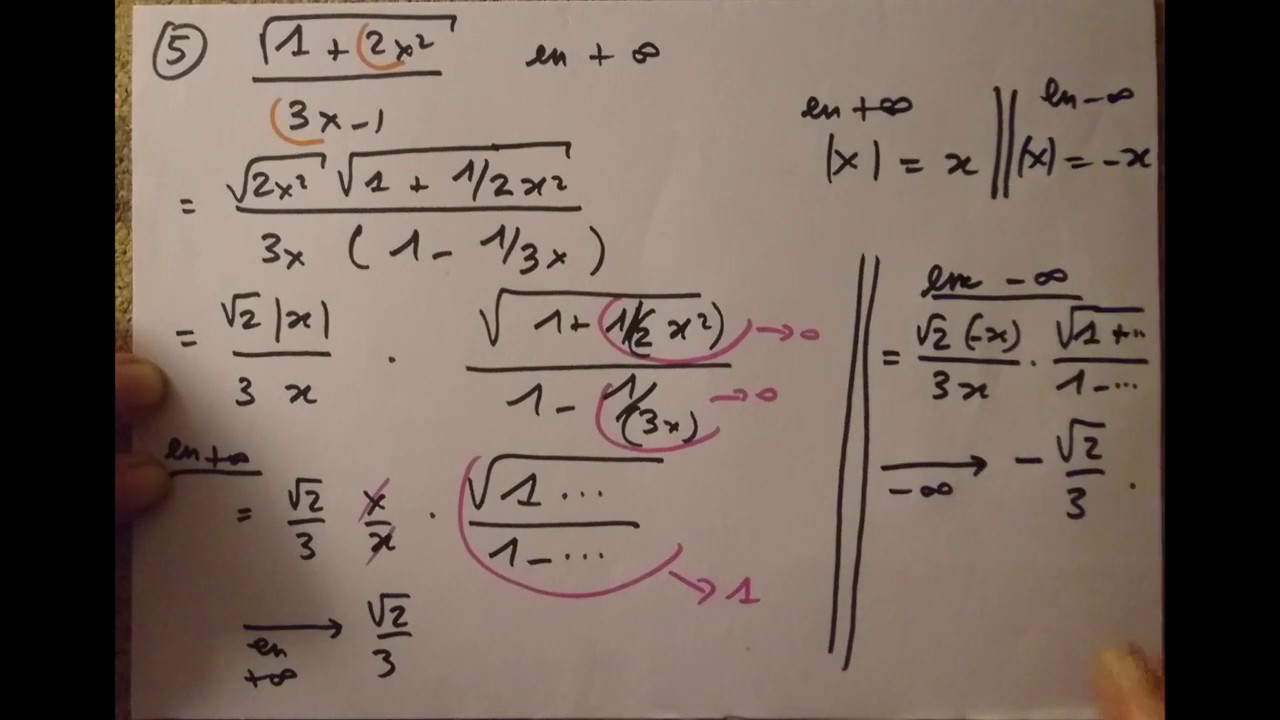 ⑤ √(1 + 2x²) / (3x - 1) en + ∞
= √(2x²) √(1 + 1/2x²) / 3x (1 - 1/3x)
= √2 |x| / 3 x · √(1 + 1/(2 x²)) → 0 / 1 - 1/(3x) → 0
en +∞
= √2/3 x/x · √(1 ...) / 1 - ... → 1
⟶ en +∞ √2/3
en +∞ || en -∞
|x| = x || |x| = -x
en - ∞
= √2 (-x) / 3x · √(1 + ..) / 1 - ...
⟶ -∞ - √2/3 .